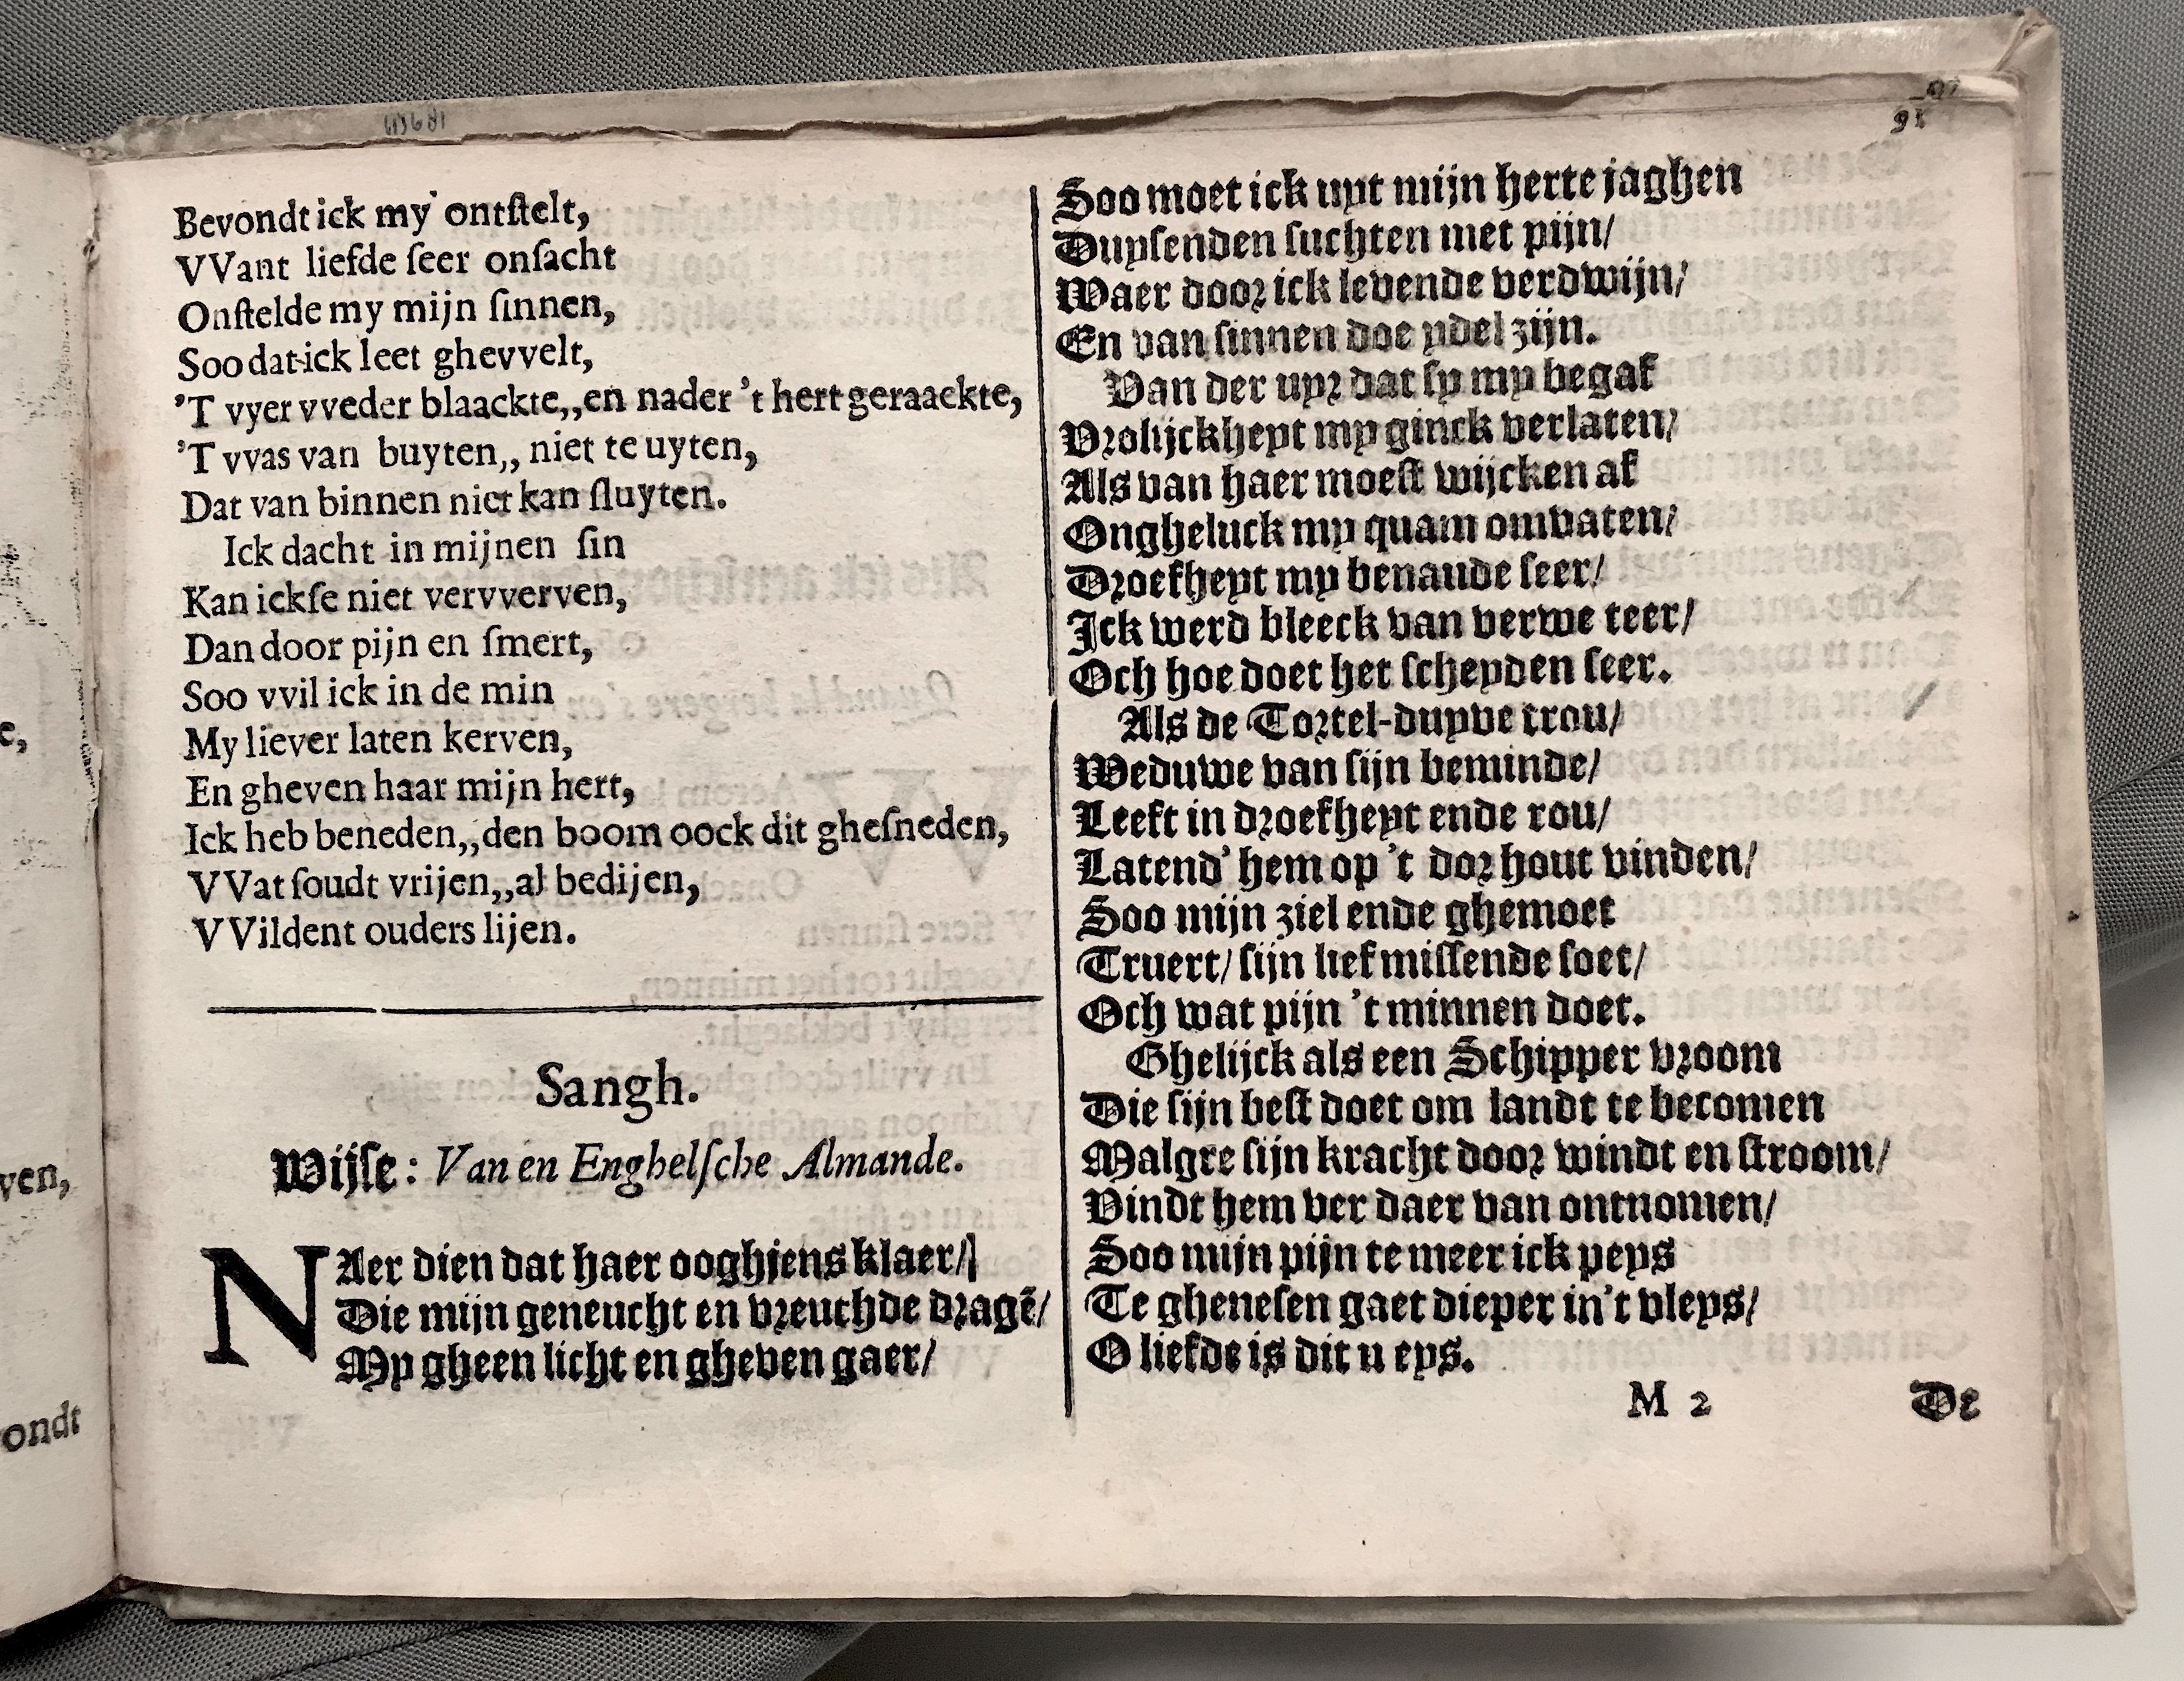 91
Bevondt ick my ontſtelt,
VVant liefde ſeer onſacht
Onſtelde my mijn ſinnen,
Soo dat-ick leet ghevvelt,
'T vyer vveder blaackte,,en nader 't hert geraackte,
'T vvas van buyten,, niet te uyten,
Dat van binnen niet kan ſluyten.
Ick dacht in mijnen ſin
Kan ickſe niet vervverven,
Dan door pijn en ſmert,
Soo vvil ick in de min
My liever laten kerven,
En gheven haar mijn hert,
Ick heb beneden,,den boom oock dit gheſneden,
VVat ſoudt vrijen,,al bedijen,
VVildent ouders lijen.
Sangh.
Wijſe: Van en Enghelſche Almande.
NAer dien dat haer ooghjens klaer/
Die mijn geneucht en vreuchde dragē/
My gheen licht en gheven gaer/
Soo moet ick uyt mijn herte jaghen
Duyſenden ſuchten met pijn/
Waer door ick levende verdwijn/
En van ſinnen doe ydel zijn.
Van der uyr dat ſy my begaf
Vrolijckheyt my ginck verlaten/
Als van haer moeſt wijcken af
Ongheluck my quam omvaten/
Droefheyt my benaude ſeer/
Ick werd bleeck van verwe teer/
Och hoe doet het ſcheyden ſeer.
Als de Tortel-duyve trou/
Weduwe van ſijn beminde/
Leeft in droefheyt ende rou/
Latend' hem op 't dor hout vinden/
Soo mijn ziel ende ghemoet
Truert/ ſijn lief miſſende ſoet/
Och wat pijn 't minnen doet.
Ghelijck als een Schipper vroom
Die ſijn beſt doet om landt te becomen
Malgre ſijn kracht door windt en ſtroom/
Vindt hem ver daer van ontnomen/
Soo mijn pijn te meer ick peys
Te gheneſen gaet dieper in't vleys/
O liefde is dit u eys.
M 2 De